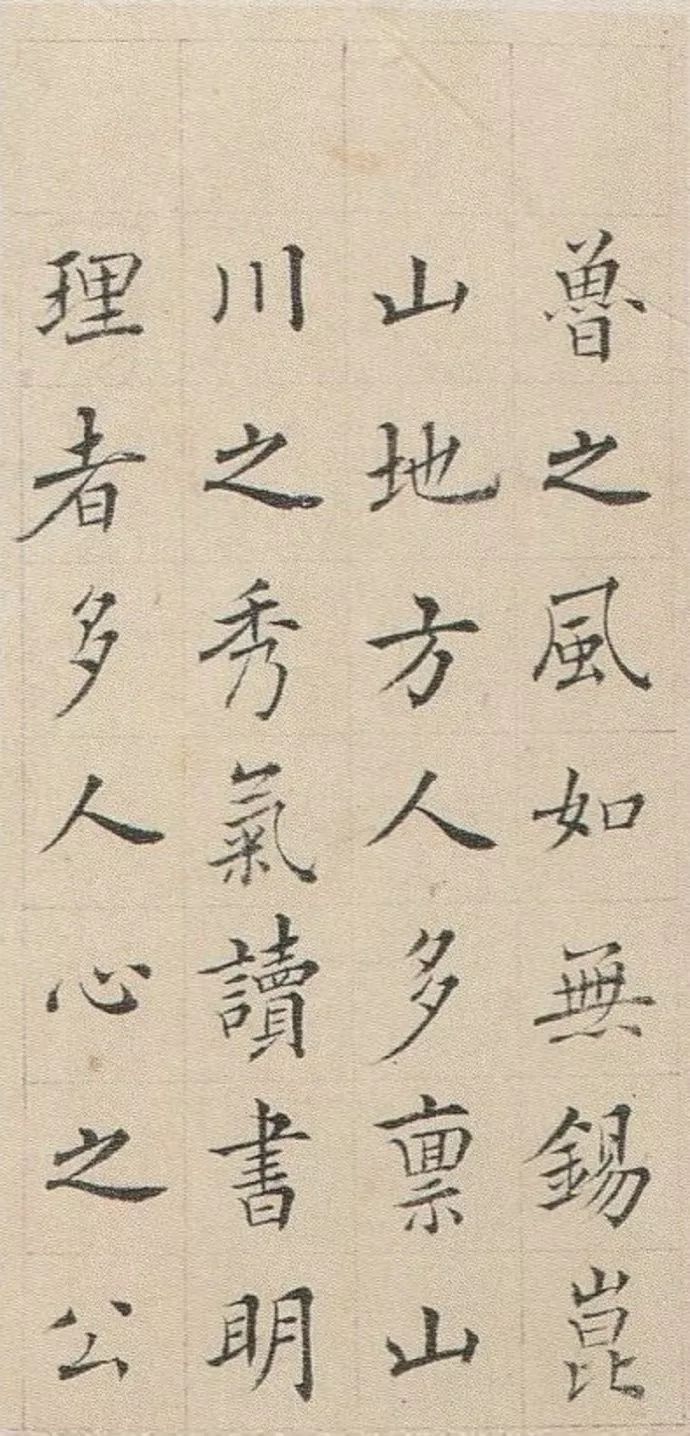 魯之風如無錫崑
山地方人多禀山
川之秀氣讀書明
理者多人心之公